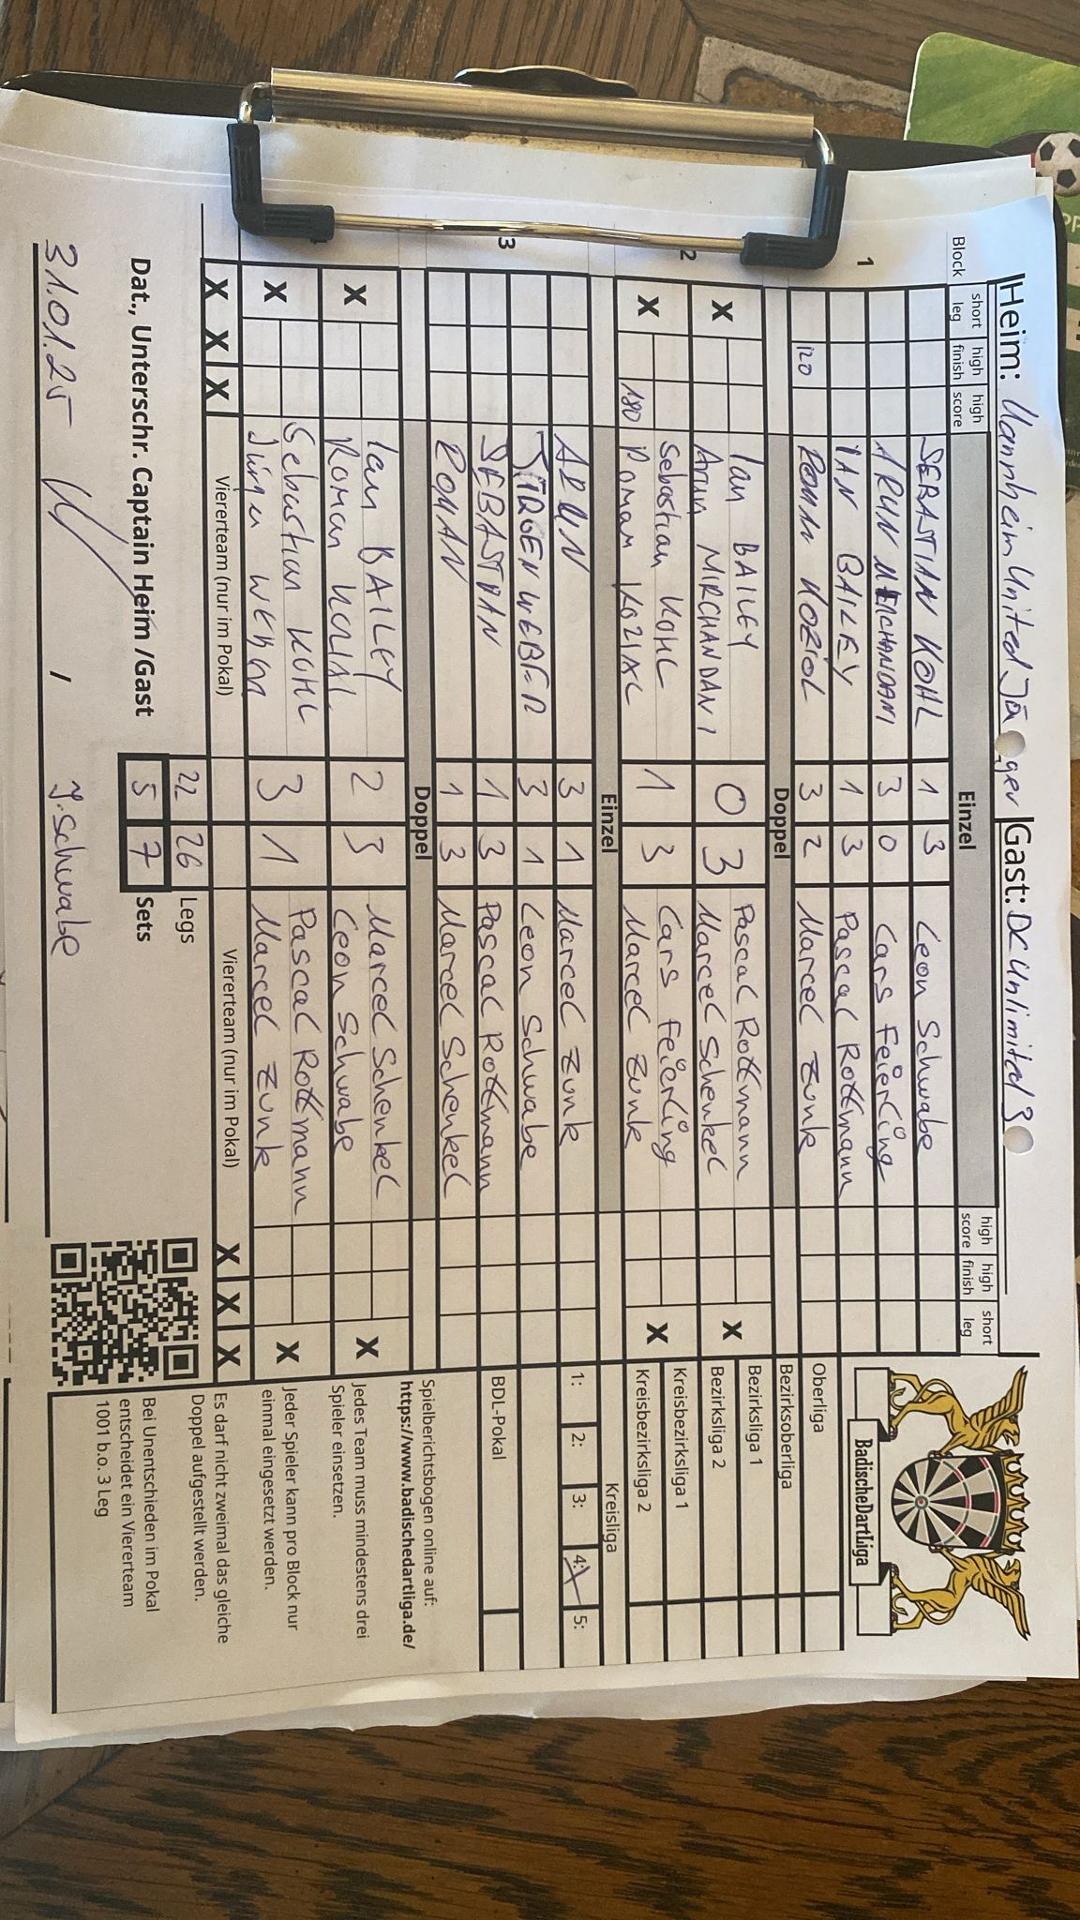 Heim: Mannheim United Jäger Gast: DC Unlimited 3
Block short leg high finish high score Einzel high score high finish short leg
1
SEBASTIAN KOHL 1 3 Leon Schwabe
ARUN MIRCHANDANI 3 0 Lars Feierling
IAN BAILEY 1 3 Pascal Rottmann
120 ROMAN KOZIOL 3 2 Marcel Zunk
Doppel
2
Ian BAILEY Pascal Rottmann
X 0 3 X
Arun MIRCHANDANI Marcel Schenkel
Sebastian KOHL Lars Feierling
X 1 3 X
180 Roman KOZIOL Marcel Zunk
Einzel
3
ARUN 3 1 Marcel Zunk
JÜRGEN WEBER 3 1 Leon Schwabe
SEBASTIAN 1 3 Pascal Rottmann
ROMAN 1 3 Marcel Schenkel
Doppel
Ian BAILEY Marcel Schenkel
X 2 3 X
Roman Leon Schwabe
Sebastian KOHL Pascal Rottmann
X 3 1 X
Jürgen WEBER Marcel Zunk
X X X Viererteam (nur im Pokal) Viererteam (nur im Pokal) X X X
22 26 Legs
5 7 Sets
Dat., Unterschr. Captain Heim /Gast
31.01.25 / J. Schwabe
BadischeDartLiga
Oberliga
Bezirksoberliga
Bezirksliga 1
Bezirksliga 2
Kreisbezirksliga 1
Kreisbezirksliga 2
Kreisliga
1: 2: 3: 4: X 5:
BDL-Pokal
Spielberichtsbogen online auf:
https://www.badischedartliga.de/
Jedes Team muss mindestens drei
Spieler einsetzen.
Jeder Spieler kann pro Block nur
einmal eingesetzt werden.
Es darf nicht zweimal das gleiche
Doppel aufgestellt werden.
Bei Unentschieden im Pokal
entscheidet ein Viererteam
1001 b.o. 3 Leg